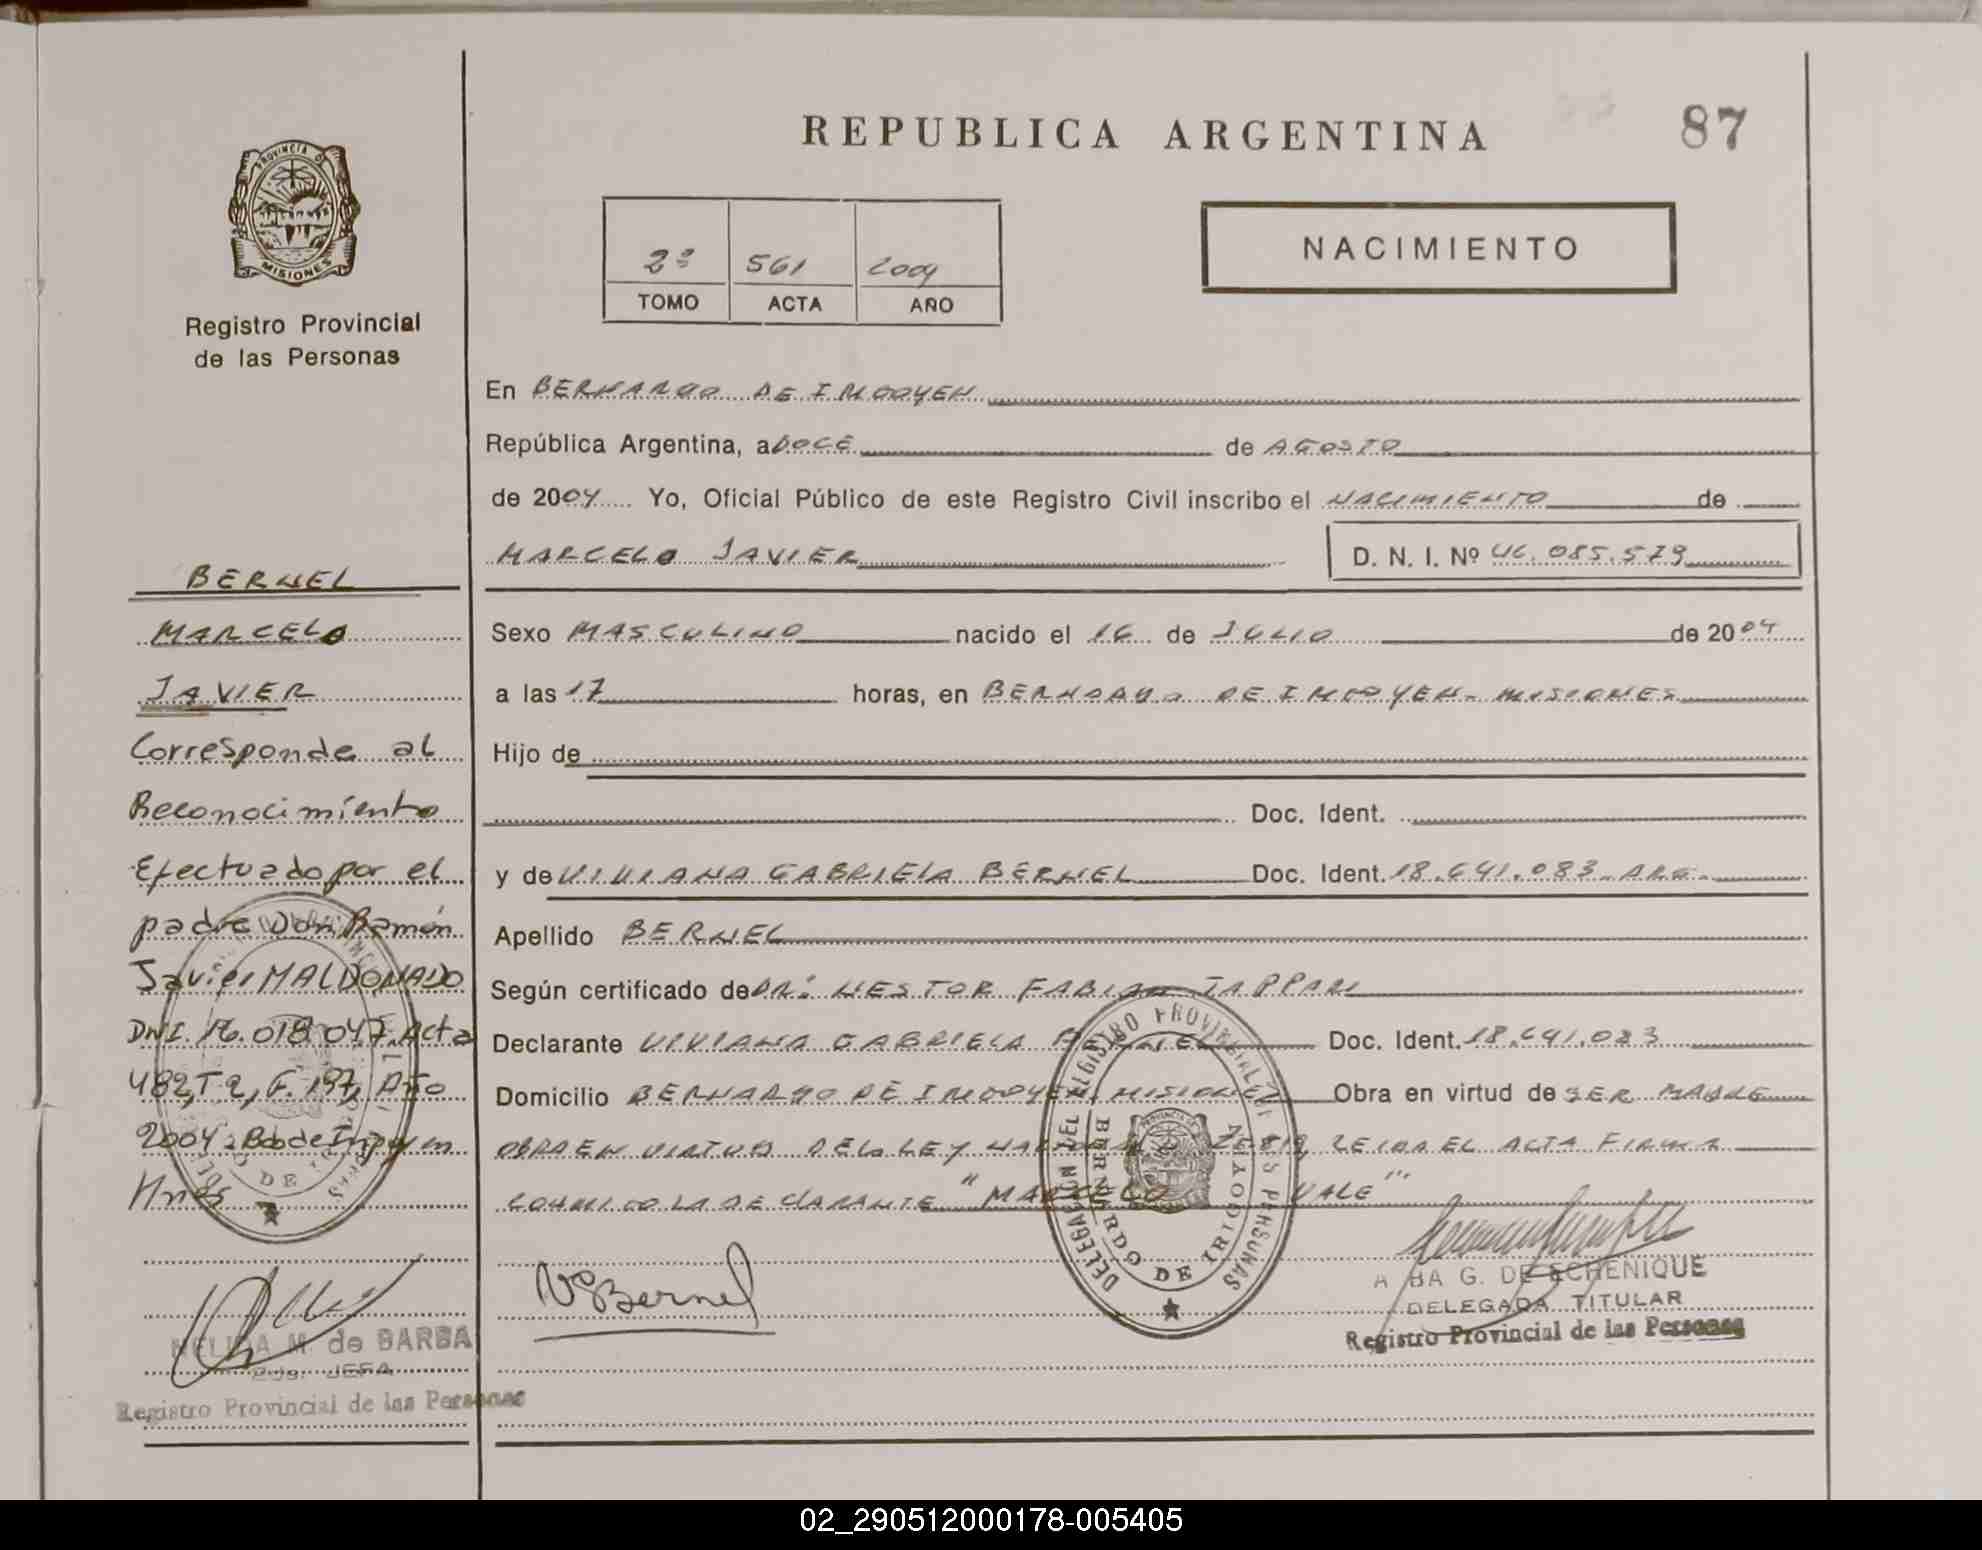 REPUBLICA ARGENTINA
87
PROVINCIA DE
MISIONES
Registro Provincial
de las Personas
2º 561 2004
TOMO ACTA AÑO
NACIMIENTO
En BERNARDO DE IRIGOYEN
República Argentina, a DOCE de AGOSTO
de 2004 Yo, Oficial Público de este Registro Civil inscribo el NACIMIENTO de
MARCELO JAVIER D. N. I. Nº 46.085.579
Sexo MASCULINO nacido el 16 de JULIO de 2004
a las 17 horas, en BERNARDO DE IRIGOYEN - MISIONES
Hijo de
Doc. Ident.
y de VIVIANA GABRIELA BERNEL Doc. Ident. 18.641.083 - ARG.-
Apellido BERNEL
Según certificado de DR: NESTOR FABIAN TAPPARI
Declarante VIVIANA GABRIELA BERNEL Doc. Ident. 18.641.083
Domicilio BERNARDO DE IRIGOYEN MISIONES Obra en virtud de SER MADRE
OBRA EN VIRTUD DE LA LEY LEIDA EL ACTA FIRMA
CONMIGO LA DECLARANTE "MARCELO VALE"
VGBernel
DELEGACION DEL REGISTRO PROVINCIAL DE LAS PERSONAS
BERNARDO DE IRIGOYEN
ALBA G. DE ECHENIQUE
DELEGADA TITULAR
Registro Provincial de las Personas
BERNEL
MARCELO
JAVIER
Corresponde al
Reconocimiento
Efectuado por el
padre Don Ramón
Javier MALDONADO
DNI. 16.018.047. Acta
482, T 2, F. 197, Año
2004. Bdo de Irigoyen
Mnes
NELIDA M. de BARBA
JEFA
Registro Provincial de las Personas
02_290512000178-005405